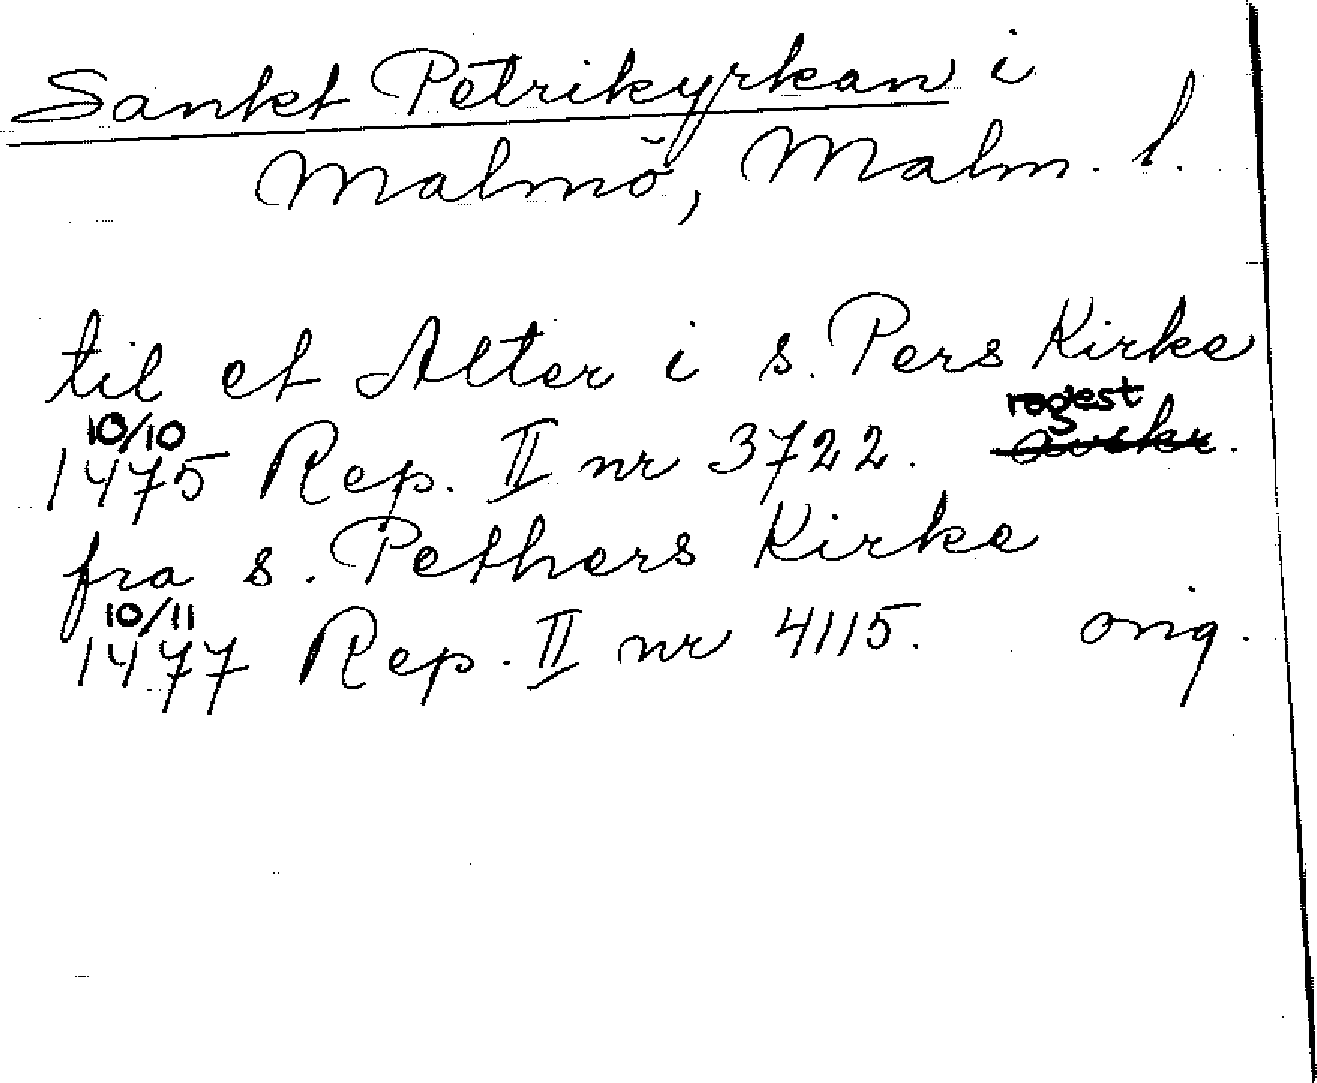 Sankt Petrikyrkan i
Malmö, Malm. l.
til et Alter i s. Pers Kirke
10/10 regest
1475 Rep. II nr 3722. avskr.
fra s. Pethers Kirke
10/11
1477 Rep. II nr 4115. orig.